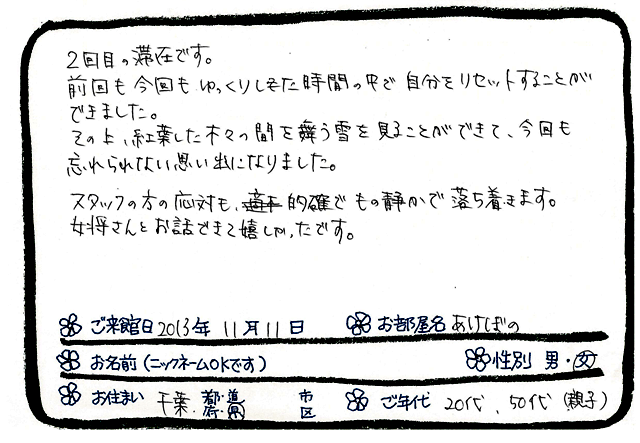 2回目の滞在です。
前回も今回もゆっくりした時間の中で自分をリセットすることが
できました。
その上、紅葉した木々の間を舞う雪を見ることができて、今回も
忘れられない思い出になりました。
スタッフの方の応対も、的確でもの静かで落ち着きます。
女将さんとお話できて嬉しかったです。
ご来館日 2013年 11月11日 お部屋名 あけぼの
お名前(ニックネームOKです) 性別 男・女
お住まい 千葉 都道府県 市区 ご年代 20代、50代(親子)